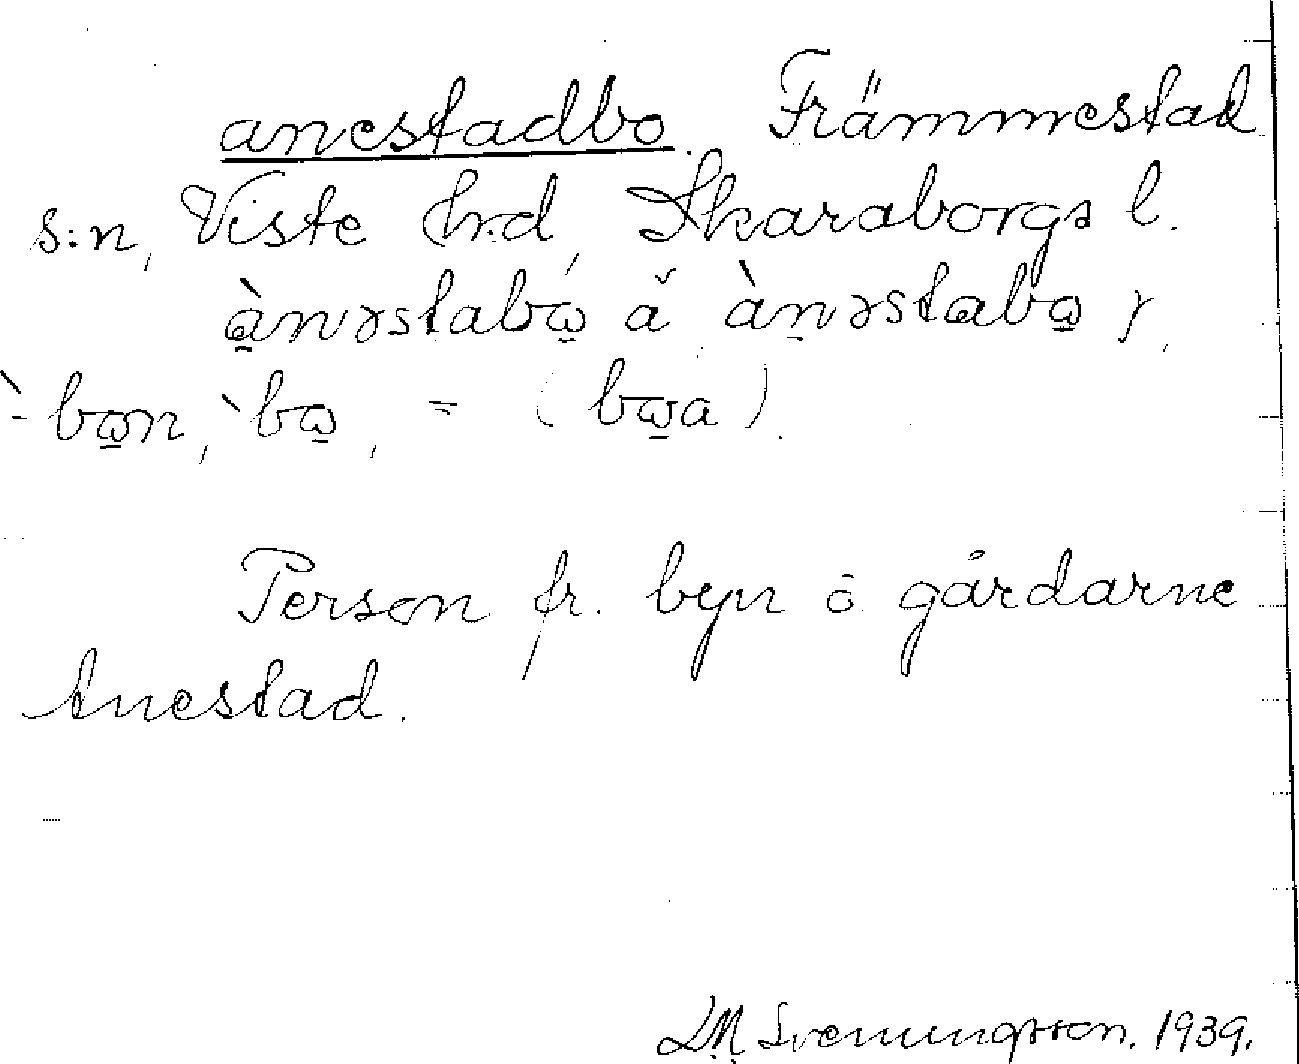 anestadbo. Främmestad
s:n, Viste hrd, Skaraborgs l.
ànəstabω̱ ǎ ànəstabω̱ r,
`-bω̱n, `bω̱, = (bω̱a).
Person fr. byn ō gårdarne
Anestad.
LM Svenungsson. 1939.